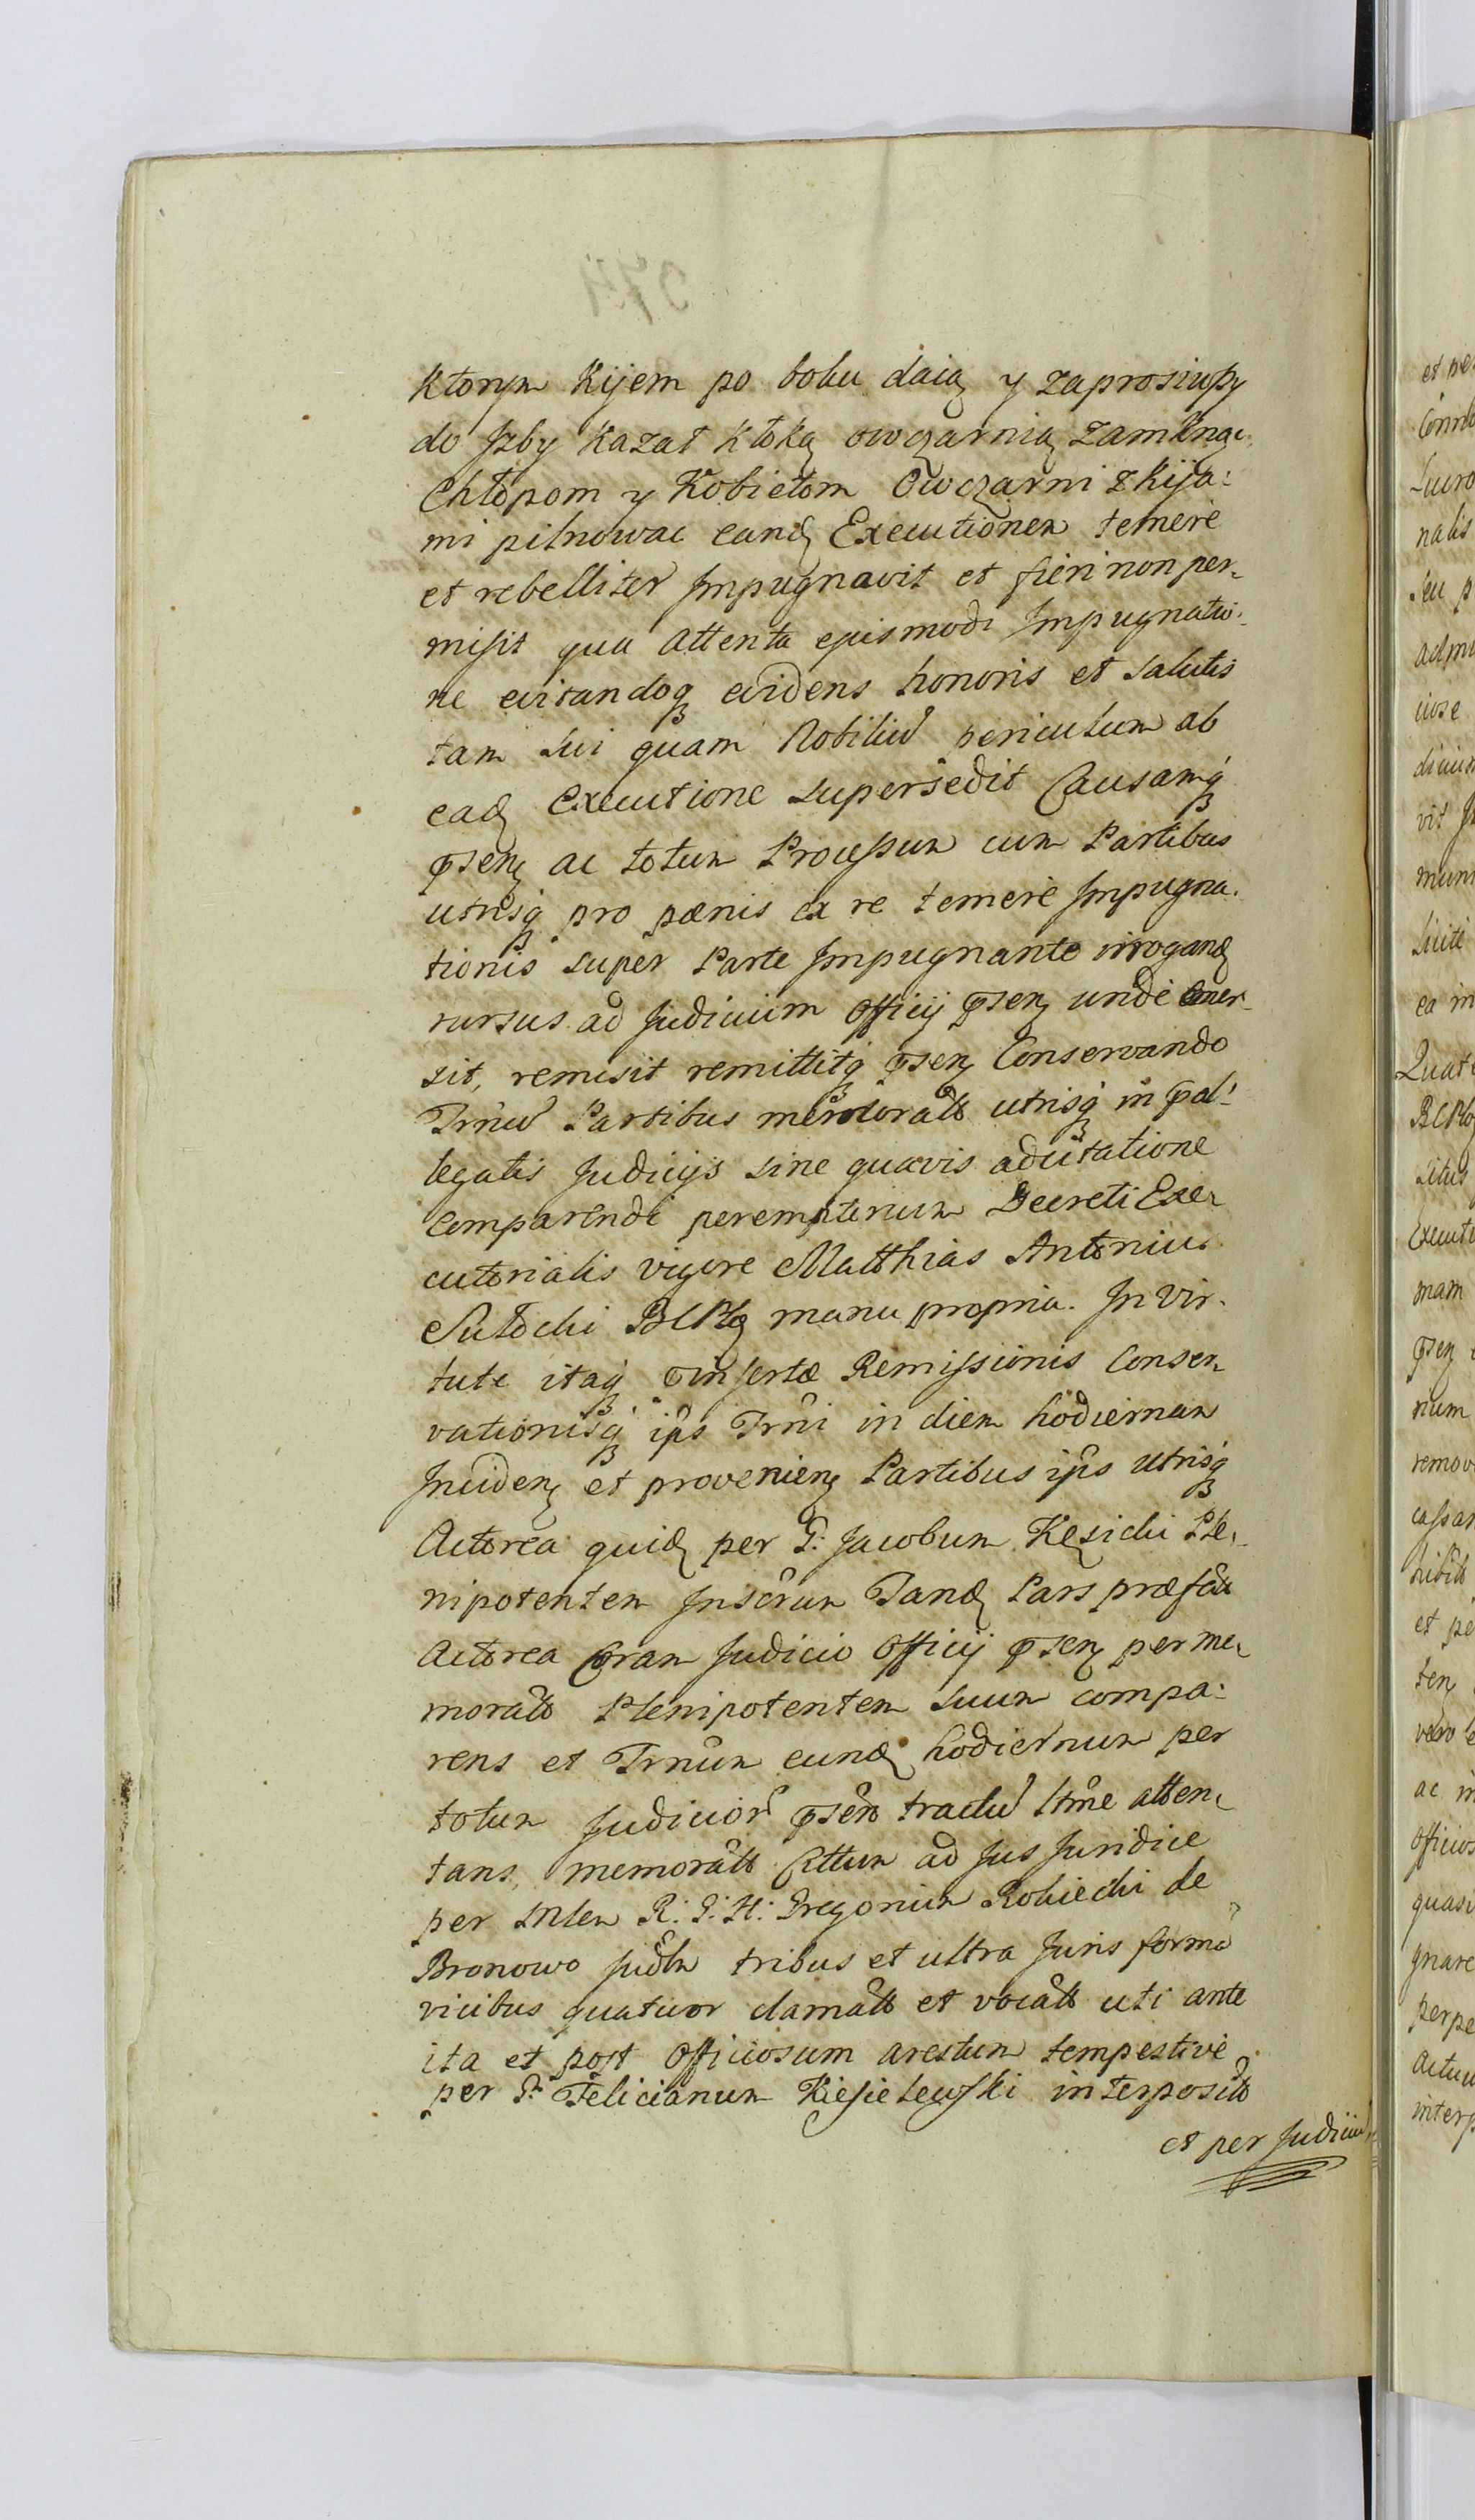 ktorym Kijem po boku daią y zaprosiwszy
do Jzby kazał kłotką owczarnią zamknąc.
Chłopom y Kobietom Owczarni z kija:
mi pilnowac eand Executionem temere
et rebelliter Jmpugnavit et fieri non per-
misit qua attenta ejusmodi Jmpugnatio-
ne evitandoq evidens honoris et salutis
tam sui quam Nobiliu periculum ab
ead Executione supersedit Causamq
pnsen ac totum Processum cum Partibus
utrisq pro pænis ex re temere Jmpugna-
tionis super Parte Jmpugnante irrogand
rursus ad Judicium Officij pnsen unde emer-
sit, remisit remittitq pnsen Conservando
Trnu Partibus memoratis utrisq in præ-
legatis Judicijs sine quavis adcitatione
comparendi peremptorium Decreti Exe-
cutorialis vigore Matthias Antonius
Sutocki BCPtg manu propria. In vir-
tute itaq præinsertæ Remissionis Conser-
vationisq ips Trni in diem hodiernam
Jnciden et provenien Partibus ips utrisq
Actorea quid per G: Jacobum Kęsicki Ple-
nipotentem Jnscrun Tand Pars præfata
Actorea Coram Judicio Officij pnsen per me-
morat Plenipotentem suum compa:
rens et Trnum eund hodiernum per
totum Judicior pnsen tractu ltme atten-
tans, memorat Cittum ad Jus Juridice
per Mlem R: G: H: Gregorium Rokicki de
Bronowo Judlem tribus et ultra Juris forma
vicibus quatuor clamat et vocat uti ante
ita et post Officiosum arestum tempestive
per G: Felicianum Kiesielewski interposit
et per Judiciu